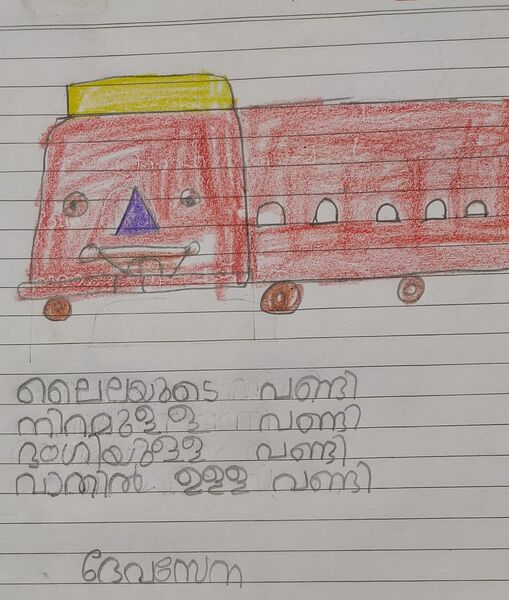 ലൈലയുടെ വണ്ടി
നിറമുള്ള വണ്ടി
ഭംഗിയുള്ള വണ്ടി
വാതിൽ ഉള്ള വണ്ടി
ദേവസേന